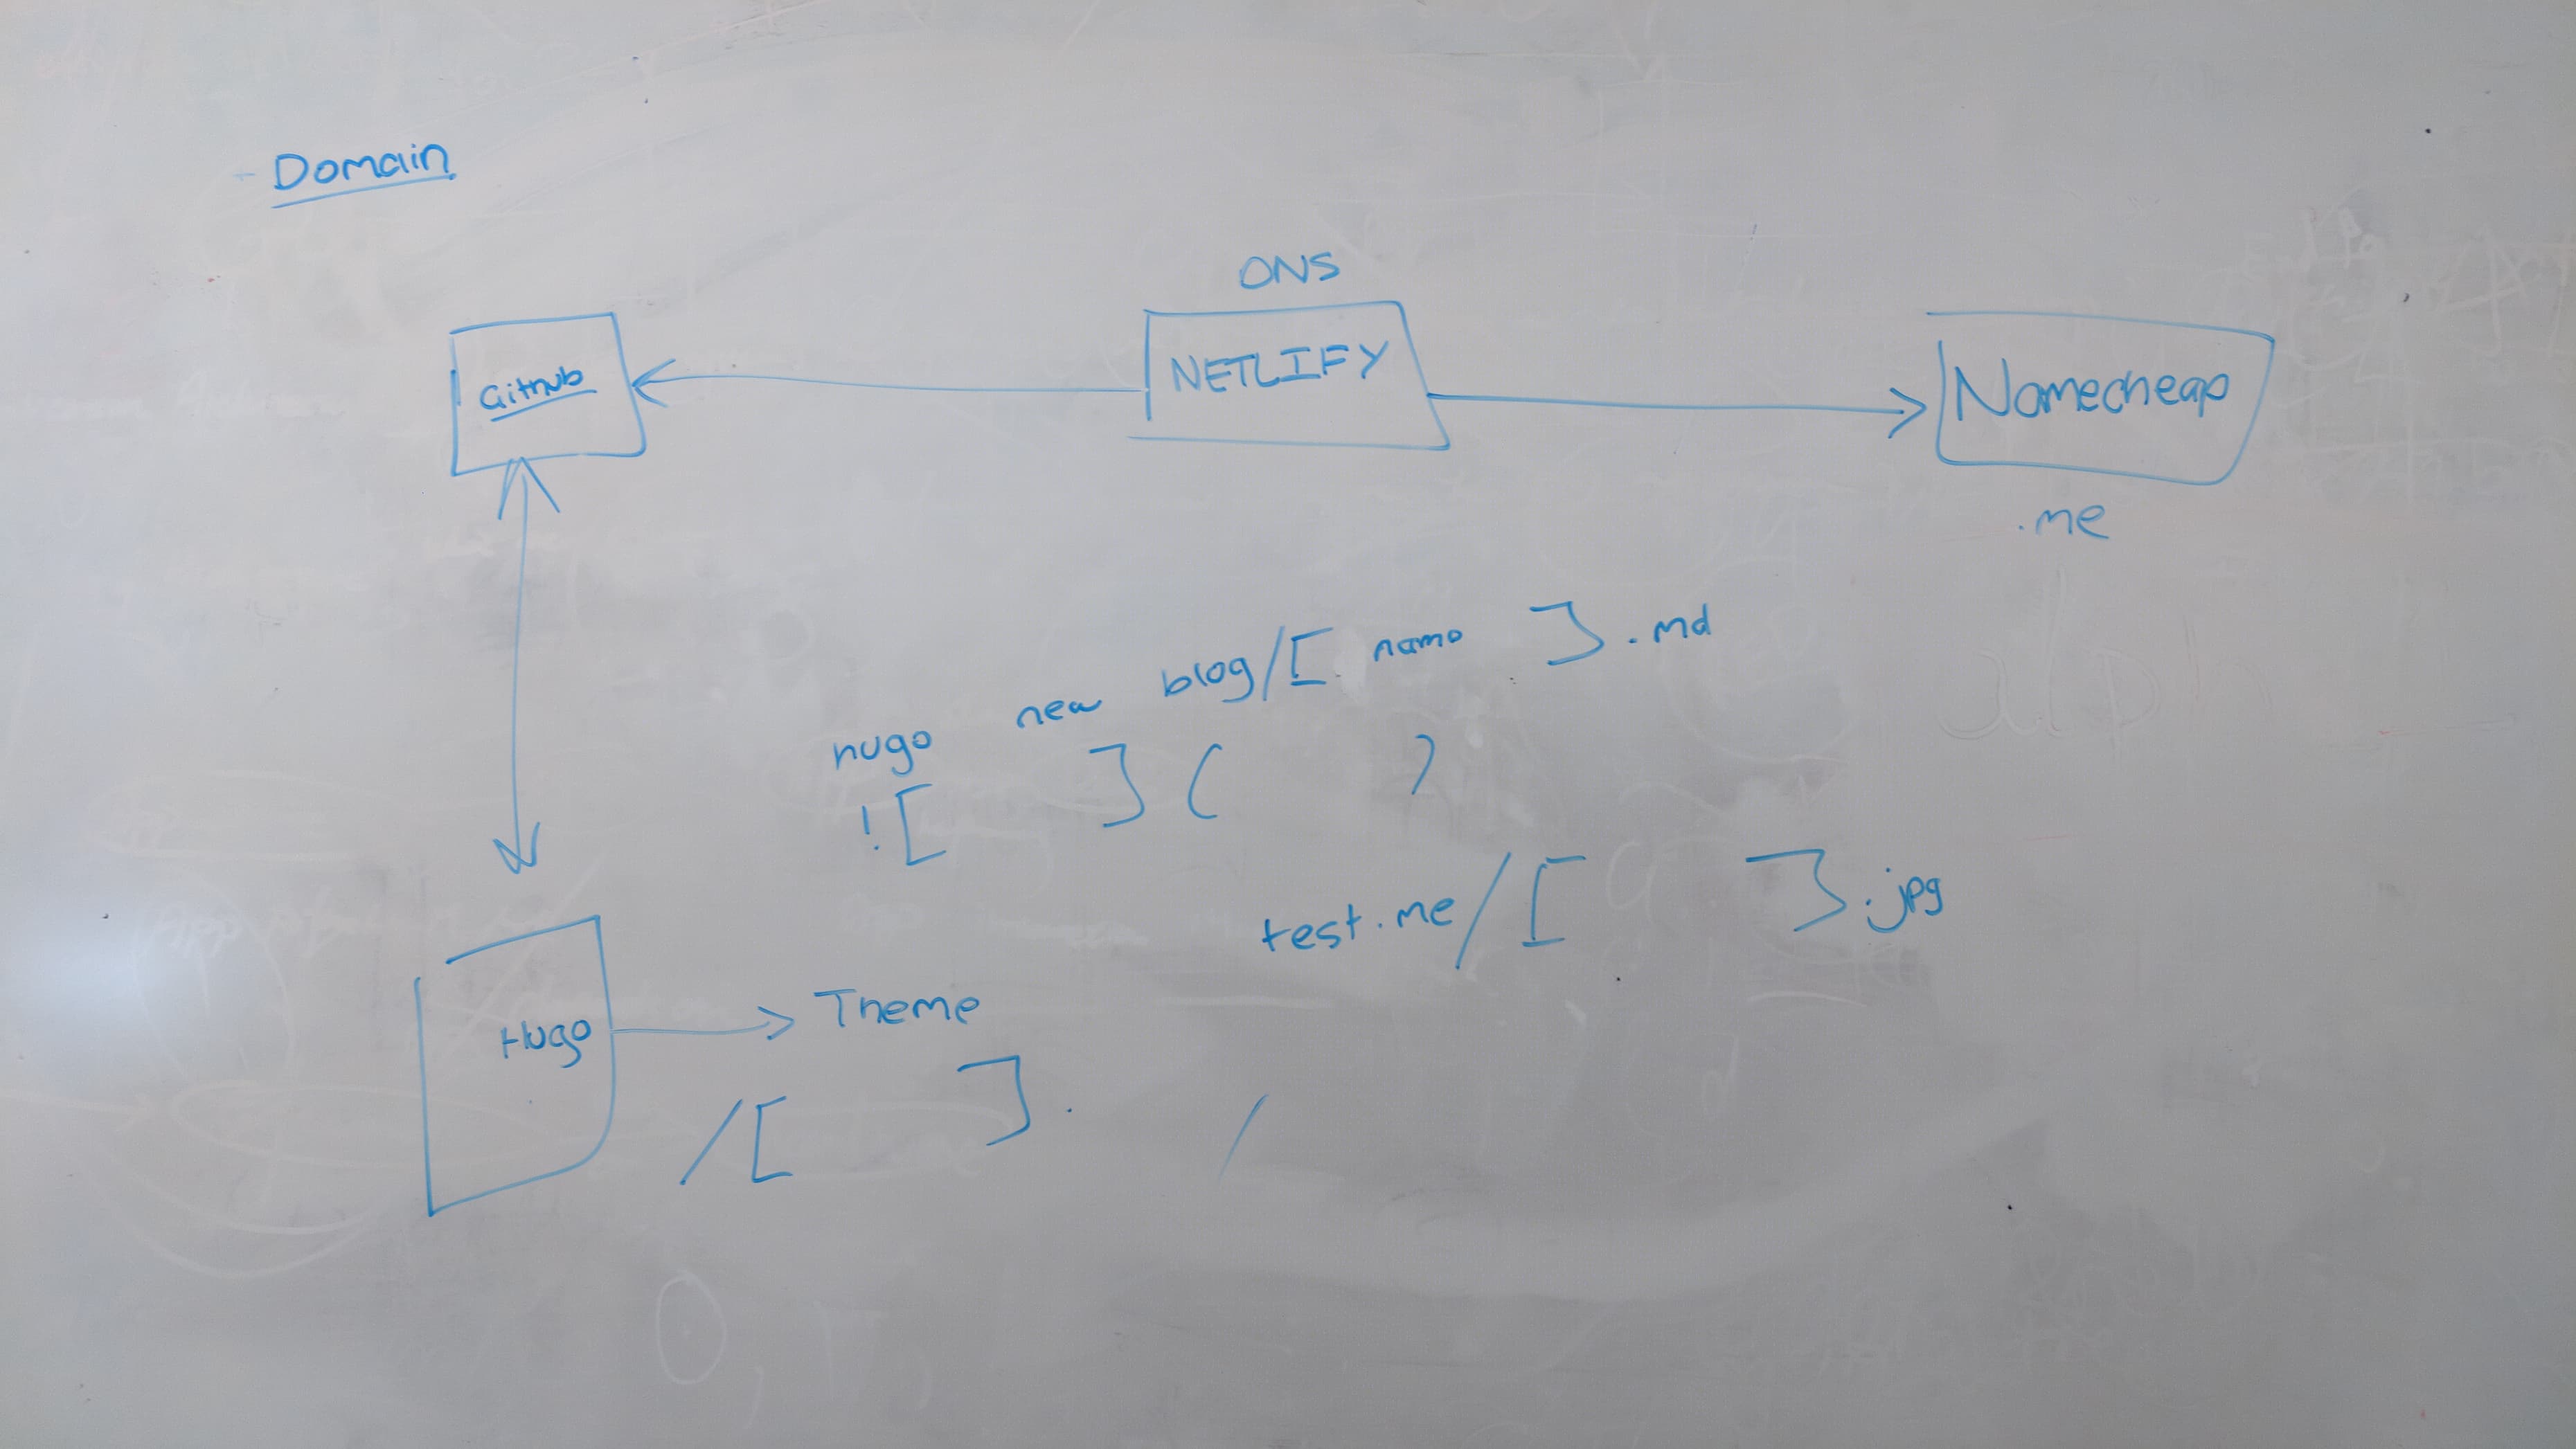 - Domain
DNS
Github
NETLIFY
Namecheap
.me
hugo new blog/[ name ].md
![ ]( )
test.me/[ ].jpg
Hugo
Theme
/[ ]. /